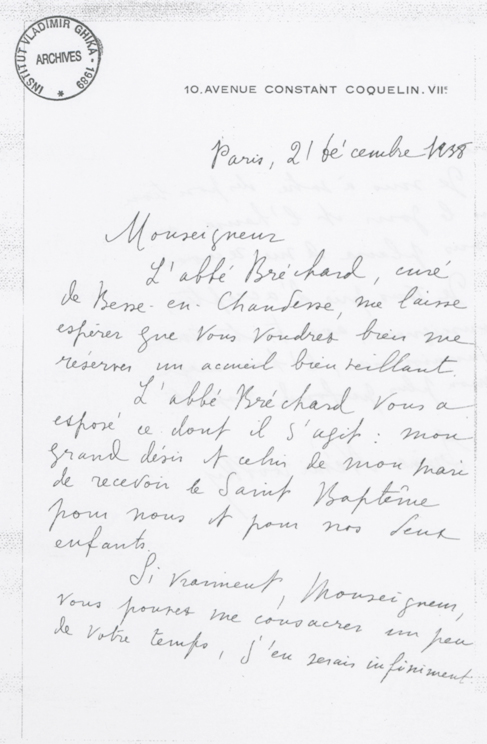 INSTITUT VLADIMIR GHIKA • 1989 *
ARCHIVES
10. AVENUE CONSTANT COQUELIN. VIIe
Paris, 21 décembre 1938
Monseigneur
L'abbé Bréchard, curé
de Besse-en-Chandesse, me laisse
espérer que vous voudrez bien me
réserver un accueil bienveillant.
L'abbé Bréchard vous a
exposé ce dont il s'agit : mon
grand désir et celui de mon mari
de recevoir le Saint Baptême
pour nous et pour nos deux
enfants.
Si vraiment, Monseigneur,
vous pouvez me consacrer un peu
de votre temps, j'en serais infiniment